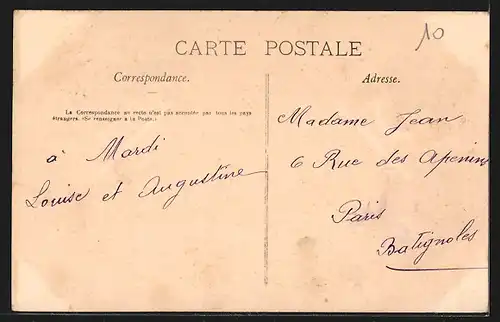 10
CARTE POSTALE
Correspondance.
La Correspondance au recto n'est pas acceptée par tous les pays
étrangers. (Se renseigner à la Poste.)
à Mardi
Louise et Augustine
Adresse.
Madame Jean
6 Rue des Apenins
Paris
Batignoles